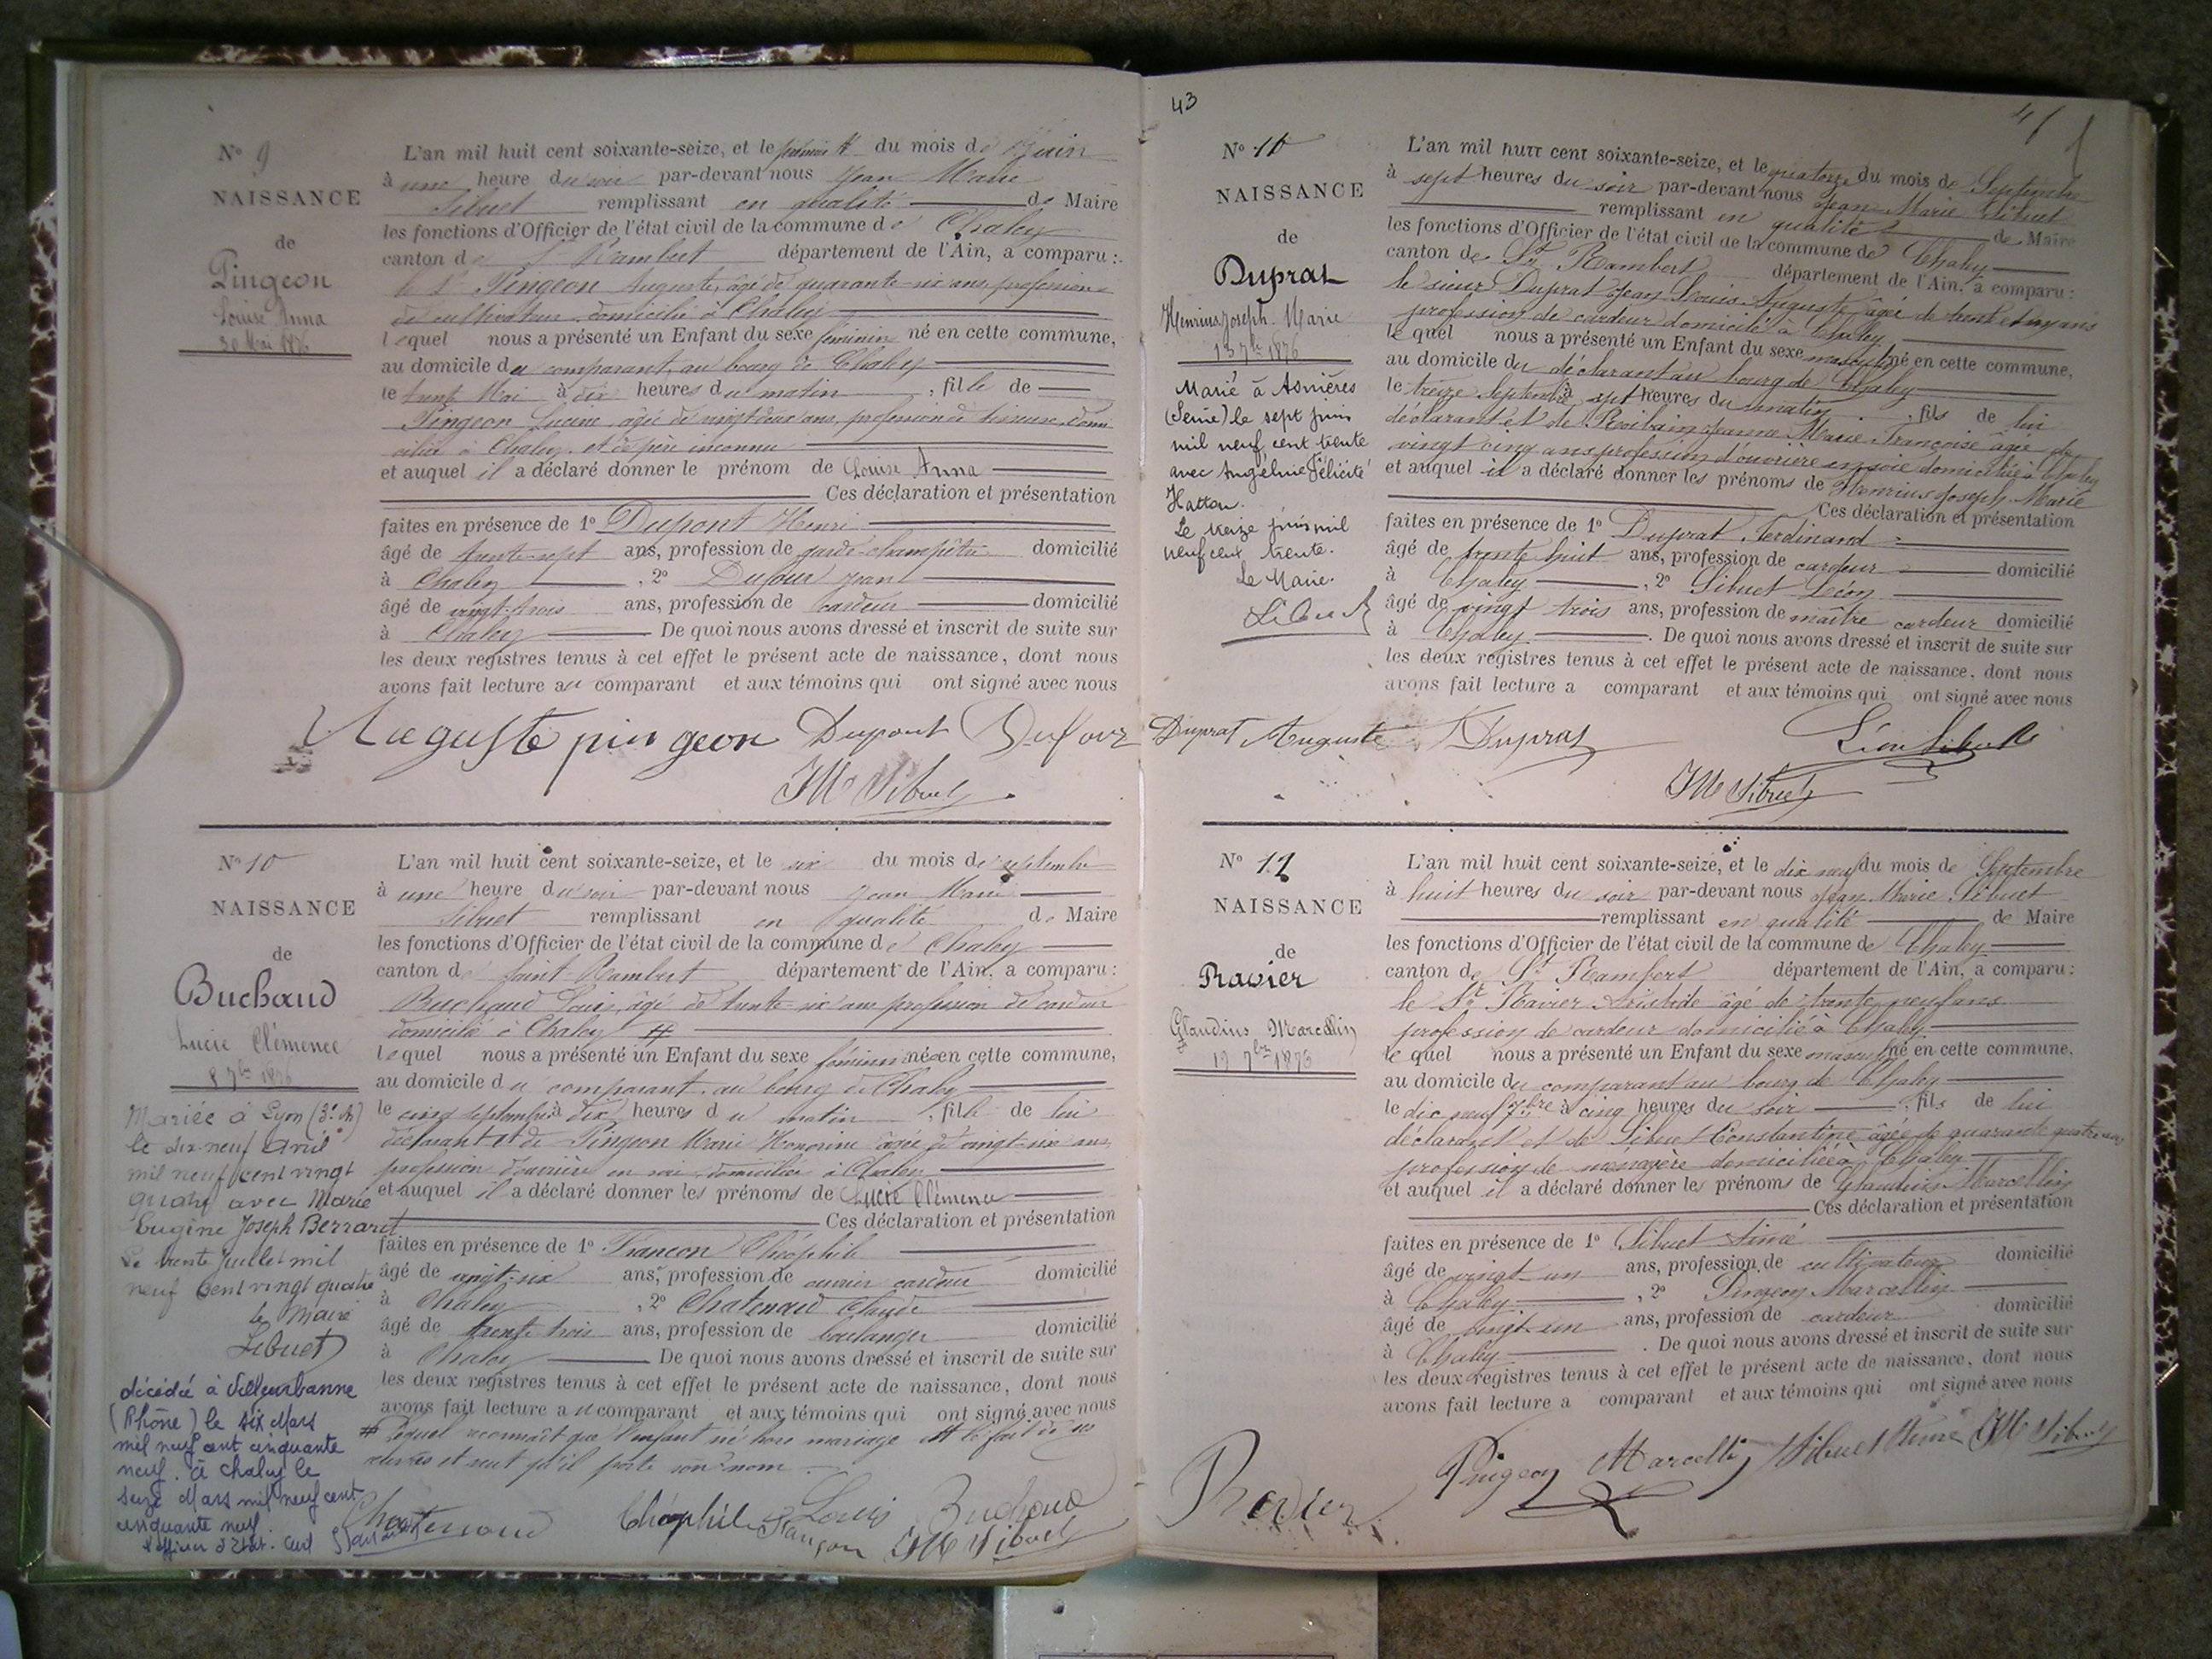 N° 9
NAISSANCE
de
Pingeon
Louise Anna
30 Mai 1876
L'an mil huit cent soixante-seize, et le premier du mois de Juin
à une heure du soir par-devant nous Jean Marie
Sibuet remplissant en qualité de Maire
les fonctions d'Officier de l'état civil de la commune de Chaley
canton de St Rambert département de l'Ain, a comparu :
le Sr Pingeon Auguste, âgé de quarante-six ans, profession
de cultivateur domicilié à Chaley
lequel nous a présenté un Enfant du sexe féminin né en cette commune,
au domicile du comparant, au bourg de Chaley
le trente Mai à dix heures du matin , fille de
Pingeon Lucine, âgée de vingt deux ans, profession de domi
ciliée à Chaley et de père inconnu
et auquel il a déclaré donner le prénom de Louise Anna
Ces déclaration et présentation
faites en présence de 1° Dupont Henri
âgé de trente-sept ans, profession de garde-champêtre domicilié
à Chaley , 2° Dufour Jean
âgé de vingt-trois ans, profession de cardeur domicilié
à Chaley De quoi nous avons dressé et inscrit de suite sur
les deux registres tenus à cet effet le présent acte de naissance, dont nous
avons fait lecture au comparant et aux témoins qui ont signé avec nous
Auguste pingeon Dupont Dufour
JM Sibuet
N° 10
NAISSANCE
de
Buchaud
Lucie Clémence
8 7bre 1876
Mariée à Lyon (3e. A)
le dix neuf avril
mil neuf cent vingt
quatre avec Marie
Eugène Joseph Berraret
Le trente Juillet mil
neuf cent vingt quatre
le Maire
Sibuet
décédée à Villeurbanne
(Rhône) le six Mars
mil neuf cent cinquante
neuf. à Chaley le
seize Mars mil neuf cent
cinquante neuf.
l'officier d'Etat. Civil
L'an mil huit cent soixante-seize, et le six du mois de septembre
à une heure du soir par-devant nous Jean Marie
Sibuet remplissant en qualité de Maire
les fonctions d'Officier de l'état civil de la commune de Chaley
canton de Saint-Rambert département de l'Ain, a comparu :
Buchaud Louis, âgé de trente-six ans profession de cardeur
domicilié à Chaley #
lequel nous a présenté un Enfant du sexe féminin né en cette commune,
au domicile du comparant, au bourg de Chaley
le cinq septembre à dix heures du matin , fille de lui
déclarant et de Pingeon Marie Honorine âgée de vingt-six ans
profession d'ouvrière en soie domiciliée à Chaley
et auquel il a déclaré donner les prénoms de Lucie Clémence
Ces déclaration et présentation
faites en présence de 1° Françon Théophile
âgé de vingt-six ans, profession de ouvrier cardeur domicilié
à Chaley , 2° Chatenoud Claude
âgé de trente trois ans, profession de boulanger domicilié
à Chaley De quoi nous avons dressé et inscrit de suite sur
les deux registres tenus à cet effet le présent acte de naissance, dont nous
avons fait lecture au comparant et aux témoins qui ont signé avec nous
# lequel reconnaît que l'enfant né hors mariage est le fait de ses
œuvres et veut qu'il porte son nom
Chatenoud Théophile Françon Louis Buchaud
JM Sibuet
43
N° 11
NAISSANCE
de
Duprat
Henrius Joseph Marie
13 7bre 1876
Marié à Asnières
(Seine) le sept juin
mil neuf cent trente
avec Angéline Félicité
Hatton.
Le treize juin mil
neuf cent trente.
Le Maire.
Sibuet
L'an mil huit cent soixante-seize, et le quatorze du mois de Septembre
à sept heures du soir par-devant nous Jean Marie Sibuet
remplissant en qualité de Maire
les fonctions d'Officier de l'état civil de la commune de Chaley
canton de St Rambert département de l'Ain, a comparu :
le sieur Duprat Jean Louis Auguste âgé de trente cinq ans
profession de cardeur domicilié à Chaley
lequel nous a présenté un Enfant du sexe masculin né en cette commune,
au domicile du déclarant au bourg de Chaley
le treize Septembre à sept heures du matin , fils de lui
déclarant et de Jeanne Marie Françoise âgée de
vingt cinq ans profession d'ouvrière en soie domiciliée à Chaley
et auquel il a déclaré donner les prénoms de Henrius Joseph Marie
Ces déclaration et présentation
faites en présence de 1° Duprat Ferdinand
âgé de trente huit ans, profession de cardeur domicilié
à Chaley , 2° Sibuet Léon
âgé de vingt trois ans, profession de maître cardeur domicilié
à Chaley . De quoi nous avons dressé et inscrit de suite sur
les deux registres tenus à cet effet le présent acte de naissance, dont nous
avons fait lecture a comparant et aux témoins qui ont signé avec nous
Duprat Auguste Duprat Léon Sibuet
JM Sibuet
N° 12
NAISSANCE
de
Ravier
Glaudius Marcellin
19 7bre 1876
L'an mil huit cent soixante-seize, et le dix neuf du mois de Septembre
à huit heures du soir par-devant nous Jean Marie Sibuet
remplissant en qualité de Maire
les fonctions d'Officier de l'état civil de la commune de Chaley
canton de St Rambert département de l'Ain, a comparu :
le Sr Ravier Aristide âgé de trente neuf ans
profession de cardeur domicilié à Chaley
lequel nous a présenté un Enfant du sexe masculin né en cette commune,
au domicile du comparant au bourg de Chaley
le dix neuf 7bre à cinq heures du soir , fils de lui
déclarant et de Sibuet Constantine âgée de quarante quatre ans
profession de ménagère domiciliée à Chaley
et auquel il a déclaré donner les prénoms de Glaudius Marcellin
Ces déclaration et présentation
faites en présence de 1° Sibuet Aimé
âgé de vingt un ans, profession de cultivateur domicilié
à Chaley , 2° Pingeon Marcellin
âgé de vingt-un ans, profession de cardeur domicilié
à Chaley . De quoi nous avons dressé et inscrit de suite sur
les deux registres tenus à cet effet le présent acte de naissance, dont nous
avons fait lecture a comparant et aux témoins qui ont signé avec nous
Ravier Pingeon Marcellin Sibuet Aimé JM Sibuet